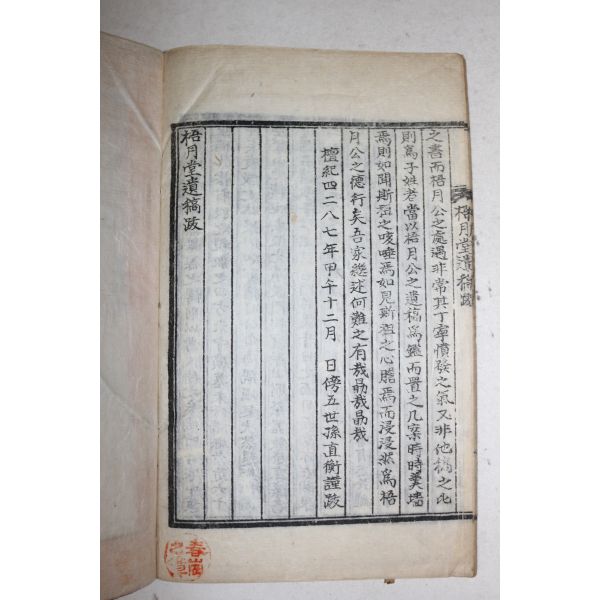 梧月堂遺稿跋
之書而梧月公之處遇非常其丁寧憤發之氣又非他稿之比
則爲子姓者當以梧月公之遺稿爲鑑而置之几案時時羹墻
焉則如聞斯祖之咳唾焉如見斯祖之心膽焉而浸浸然爲梧
月公之德行矣吾家繼述何難之有哉勗哉勗哉
檀紀四二八七年甲午十二月　日傍五世孫直衡謹跋
梧月堂遺稿跋
春